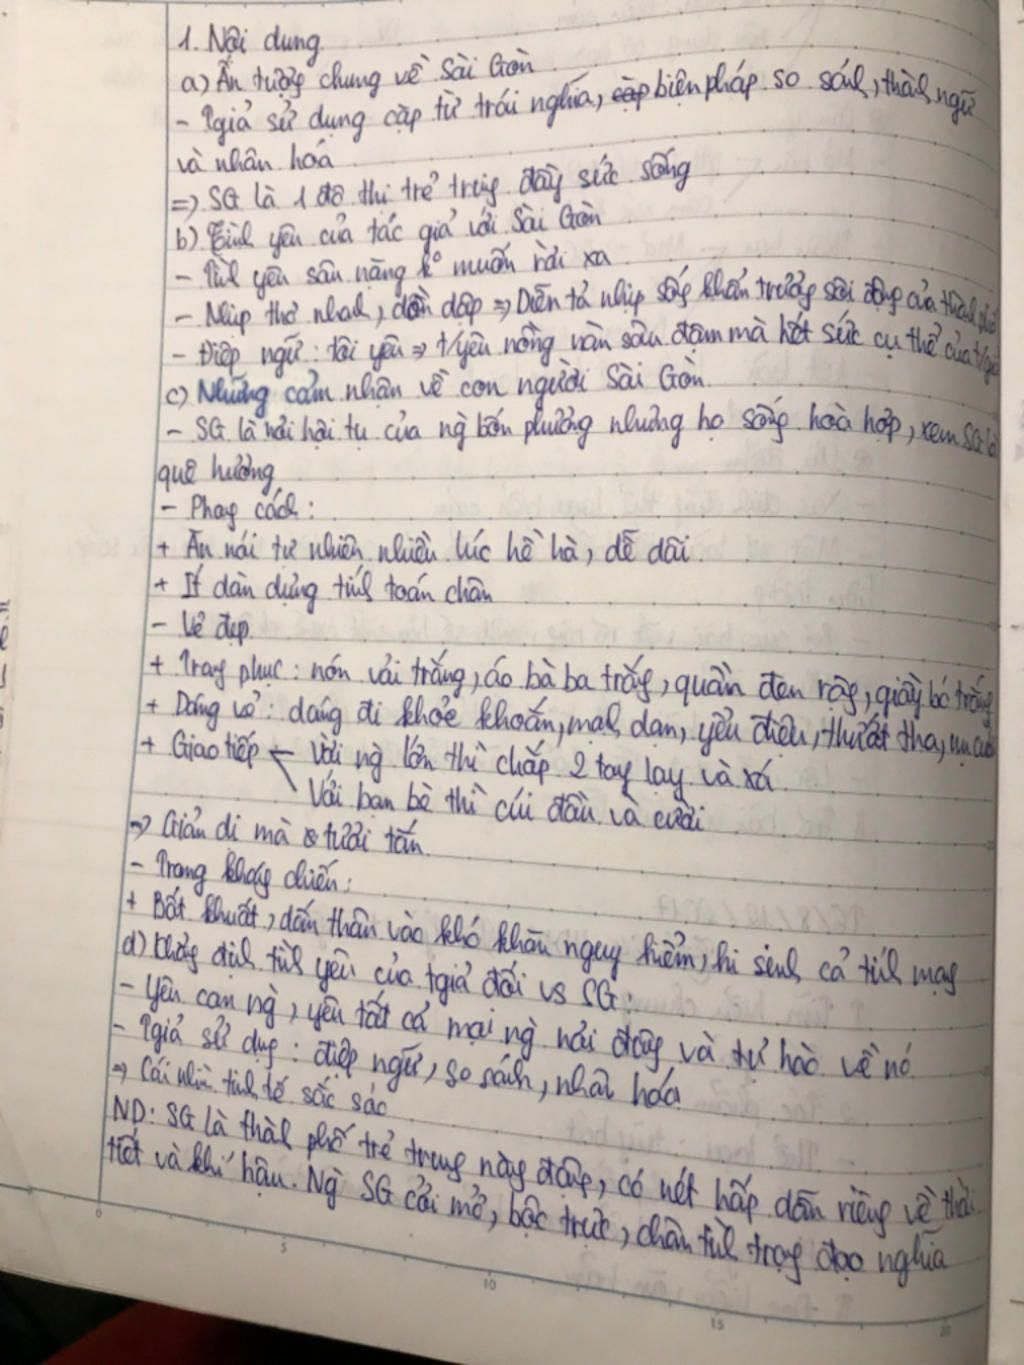 1. Nội dung
a) Ấn tượng chung về Sài Gòn
- Tgiả sử dụng cặp từ trái nghĩa, cặp biện pháp so sánh, thành ngữ
và nhân hoá
=> SG là 1 đô thị trẻ trung đầy sức sống
b) Tình yêu của tác giả với Sài Gòn
- Tình yêu sâu nặng ko muốn rời xa
- Nhịp thơ nhanh, dồn dập => Diễn tả nhịp sống khẩn trương sôi động của thành phố
- Điệp ngữ: tôi yêu => t/yêu nồng vàn sâu đậm mà hết sức cụ thể của t/giả
c) Những cảm nhận về con người Sài Gòn
- SG là nơi hội tụ của ng` bốn phương nhưng họ sống hoà hợp, xem SG là
quê hương
- Phong cách:
+ Ăn nói tự nhiên nhiều lúc hề hà, dễ dãi
+ Ít dàn dựng tính toán chân
- Vẻ đẹp
+ Trang phục: nón vải trắng, áo bà ba trắng, quần đen rộng, giày bó trắng
+ Dáng vẻ: dáng đi khoẻ khoắn, mạnh dạn, yểu điệu, thướt tha, nụ cười
+ Giao tiếp ← Với ng` lớn thì chắp 2 tay lạy và xá
Với bạn bè thì cúi đầu và cười
=> Giản dị mà tươi tắn
- Trong kháng chiến:
+ Bất khuất, dấn thân vào khó khăn nguy hiểm, hi sinh cả tính mạng
d) Khẳng định tình yêu của tgiả đối vs SG:
- Yêu con ng`, yêu tất cả mọi ng` nơi đây và tự hào về nó
- Tgiả sử dụng: điệp ngữ, so sánh, nhân hoá
=> Cái nhìn tinh tế sắc sảo
ND: SG là thành phố trẻ trung năng động, có nét hấp dẫn riêng về thời
tiết và khí hậu. Ng` SG cởi mở, bộc trực, chân tình trọng đạo nghĩa
0 5 10 15 20